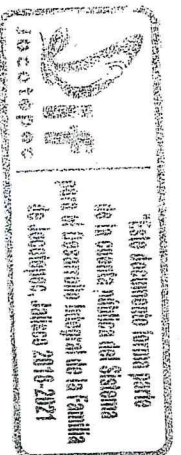 DIF
Jocotepec
"Este documento forma parte
de la cuenta pública del Sistema
para el Desarrollo Integral de la Familia
de Jocotepec, Jalisco 2018-2021